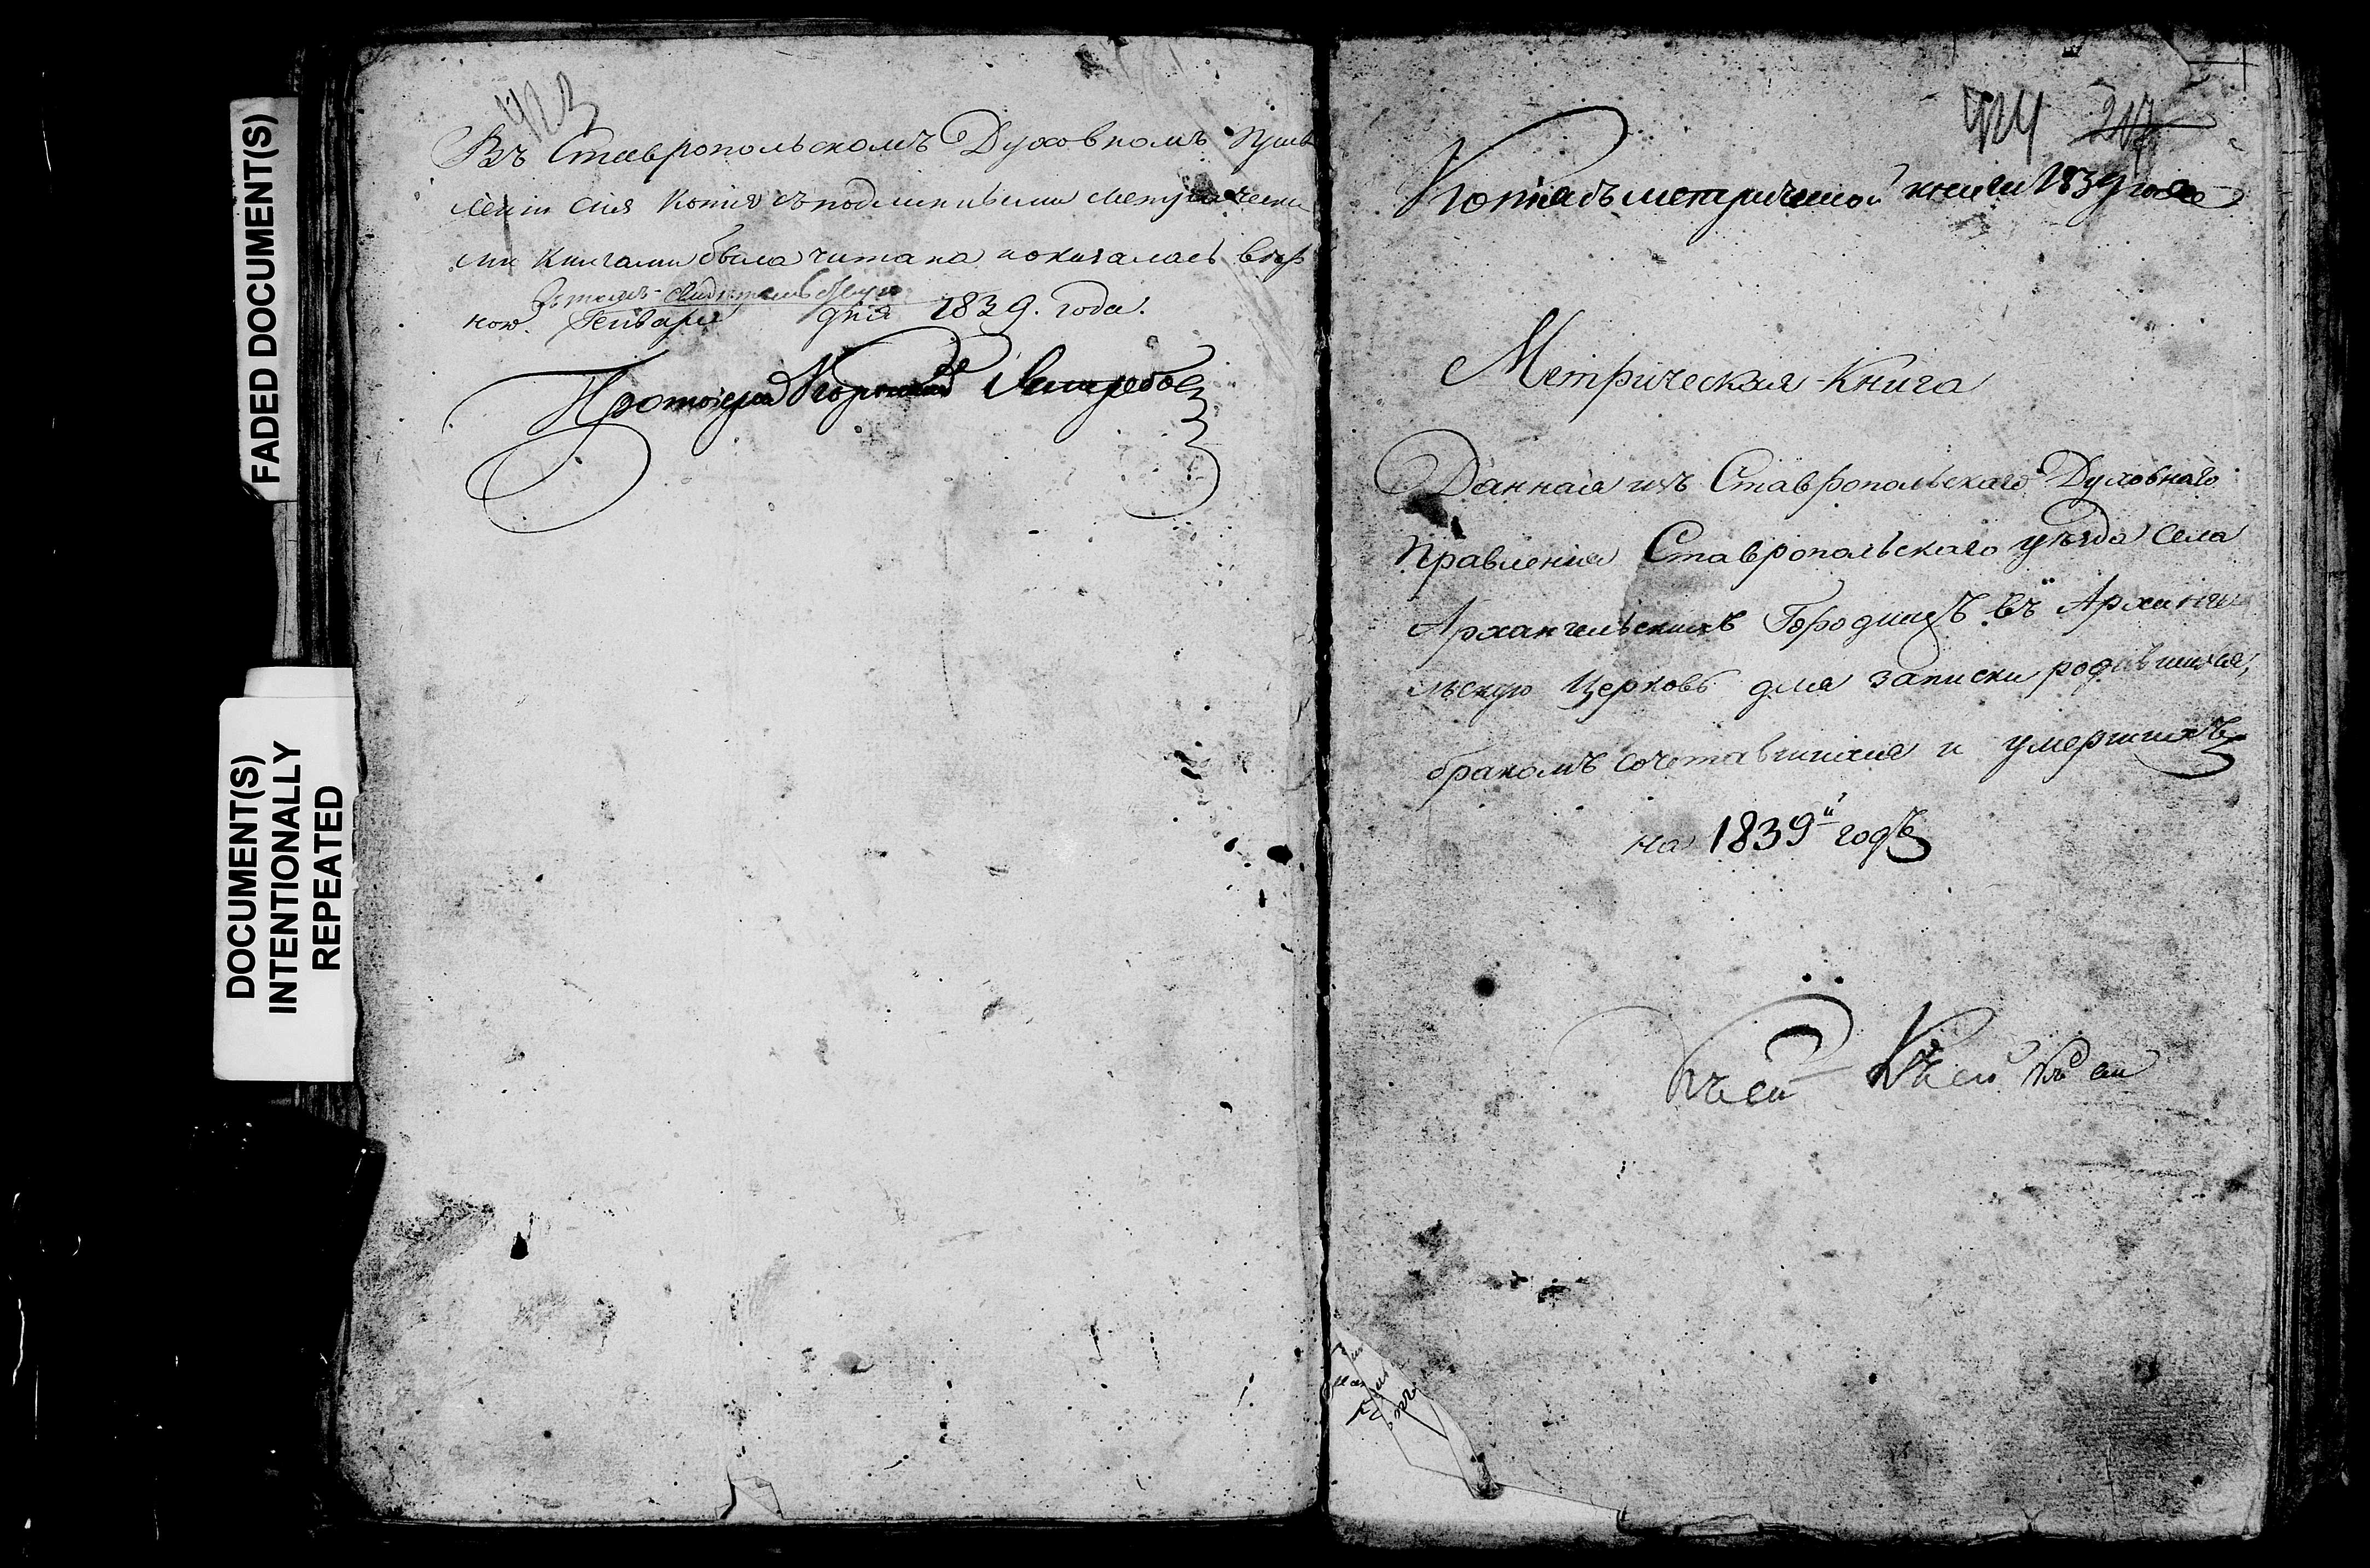 FADED DOCUMENT(S)
DOCUMENT(S)
INTENTIONALLY
REPEATED
423
Въ Ставропольскомъ Духовномъ Прав
леніи сія копія съ подлинными метрически
ми книгами была читана и оказалась вѣр
въ томъ свидѣтельствую
ною. Генваря дня 1839. года.
Протоіерей
424 217
Копія съ метрической книги 1839 года
Метрическая Книга
Данная изъ Ставропольскаго Духовнаго
Правленія Ставропольскаго уѣзда Села
Архангельскихъ Городищъ въ Архангe
льскую Церковь для записки родившихся,
бракомъ сочетавшихся и умершихъ
на 1839й годъ